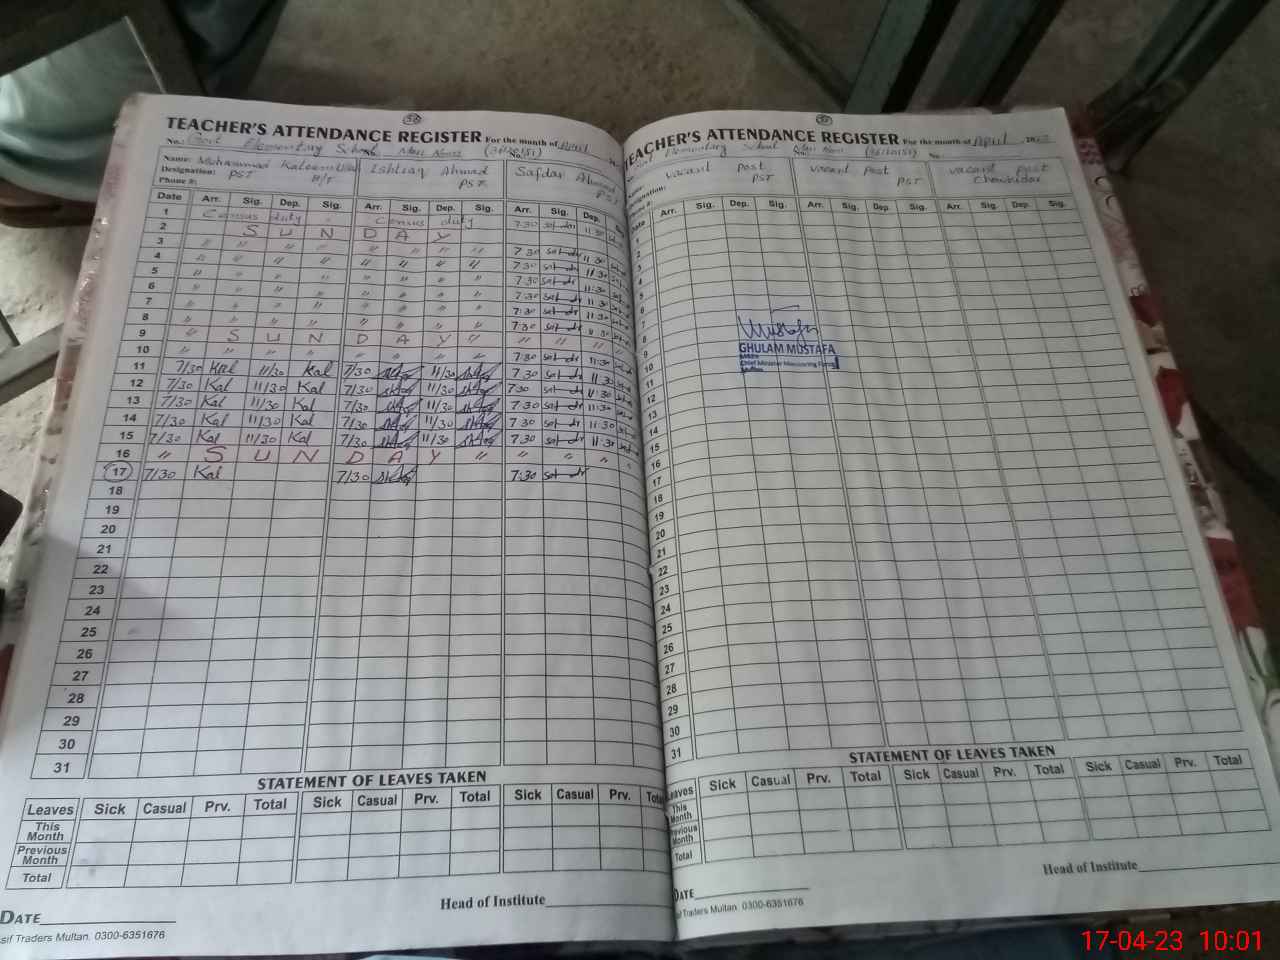 36
TEACHER'S ATTENDANCE REGISTER For the month of April
No. Govt Elementary School (36120151)
Name: Muhammad Kaleemullah
Designation: PST
Phone #:
Ishtiaq Ahmad
PST
Safdar Ahmad
PST
Date Arr. Sig. Dep. Sig. Arr. Sig. Dep. Sig. Arr. Sig. Dep.
1 Census duty Census duty 7:30 11:30
2 S U N D A Y
3 " " " " " " " " 7:30 11:30
4 " " " " " " " " 7:30 11:30
5 " " " " " " " " 7:30 11:30
6 " " " " " " " " 7:30 11:30
7 " " " " " " " " 7:30 11:30
8 " " " " " " " " 7:30 11:30
9 " S U N D A Y " " " " "
10 " " " " " " " " 7:30 11:30
11 7/30 Kal 11/30 Kal 7/30 11/30 7:30 11:30
12 7/30 Kal 11/30 Kal 7/30 11/30 7:30 11:30
13 7/30 Kal 11/30 Kal 7/30 11/30 7:30 11:30
14 7/30 Kal 11/30 Kal 7/30 11/30 7:30 11:30
15 7/30 Kal 11/30 Kal 7/30 11/30 7:30 11:30
16 " S U N D A Y " " " " "
17 7/30 Kal 7/30 7:30
18
19
20
21
22
23
24
25
26
27
28
29
30
31
STATEMENT OF LEAVES TAKEN
Leaves Sick Casual Prv. Total Sick Casual Prv. Total Sick Casual Prv. Total
This Month
Previous Month
Total
Head of Institute
DATE
sif Traders Multan. 0300-6351676
TEACHER'S ATTENDANCE REGISTER For the month of April
Elementary School (36120151) No.
Designation:
vacant Post
PST
vacant Post
PST
vacant Post
Chowkidar
Date Arr. Sig. Dep. Sig. Arr. Sig. Dep. Sig. Arr. Sig. Dep. Sig.
1
2
3
4
5
6
7
8
9
10
11
12
13
14
15
16
17
18
19
20
21
22
23
24
25
26
27
28
29
30
31
Mustafa
GHULAM MUSTAFA
Chief Minister Monitoring Force
Multan
STATEMENT OF LEAVES TAKEN
Leaves Sick Casual Prv. Total Sick Casual Prv. Total Sick Casual Prv. Total
This Month
Previous Month
Total
Head of Institute
DATE
sif Traders Multan. 0300-6351676
17-04-23 10:01